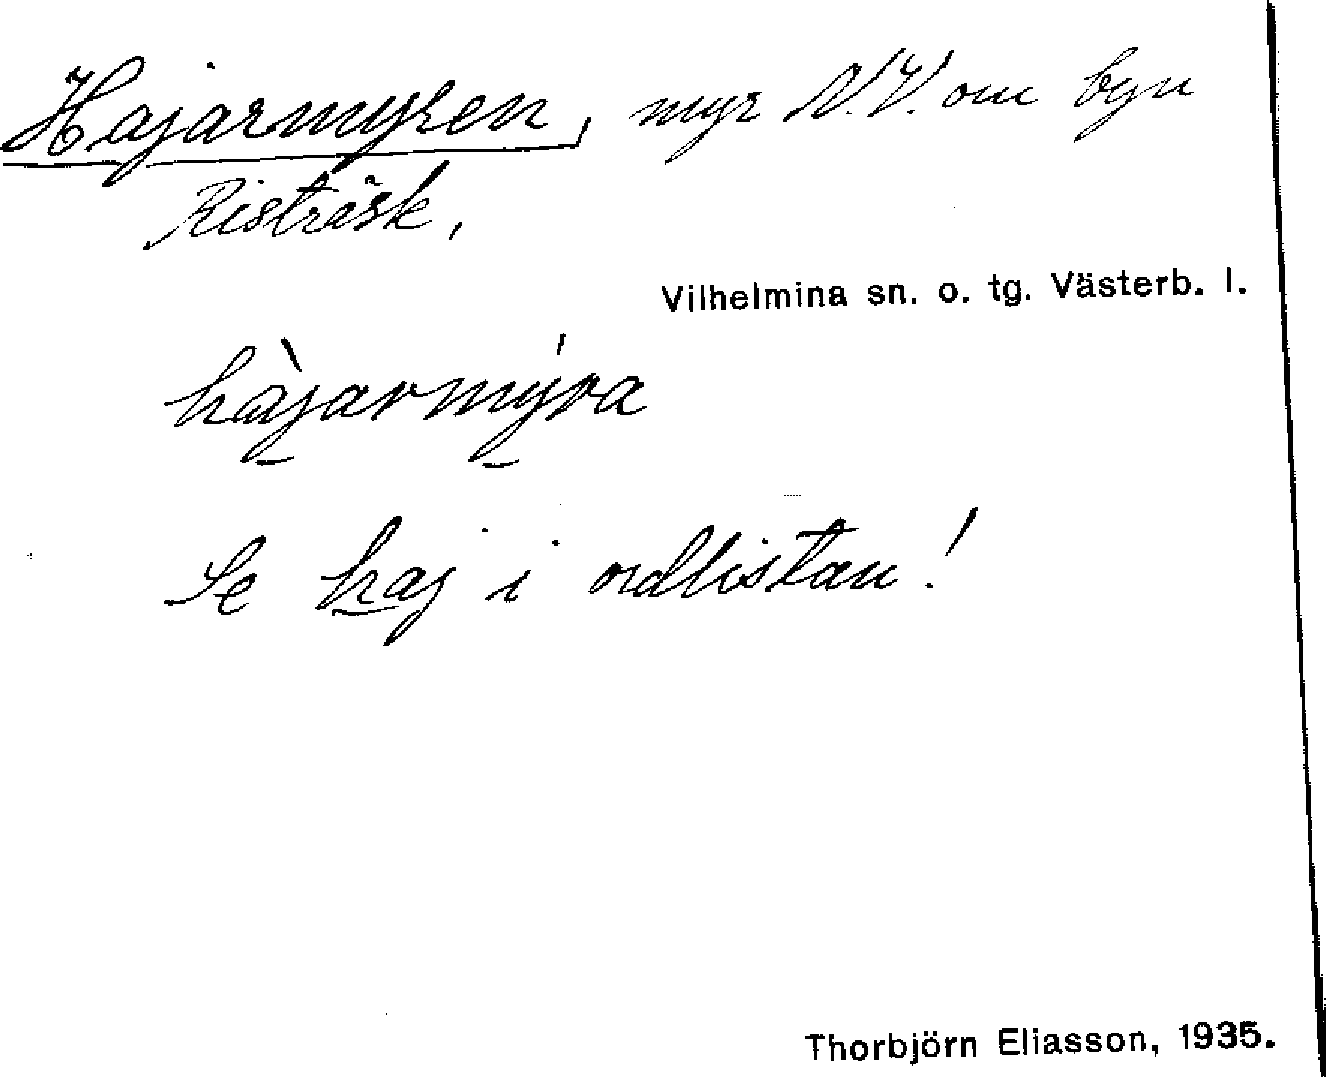 Hajarmyren, myr N.V. om byn
Risträsk,
Vilhelmina sn. o. tg. Västerb. l.
hàjarmýra
Se haj i ordlistan!
Thorbjörn Eliasson, 1935.